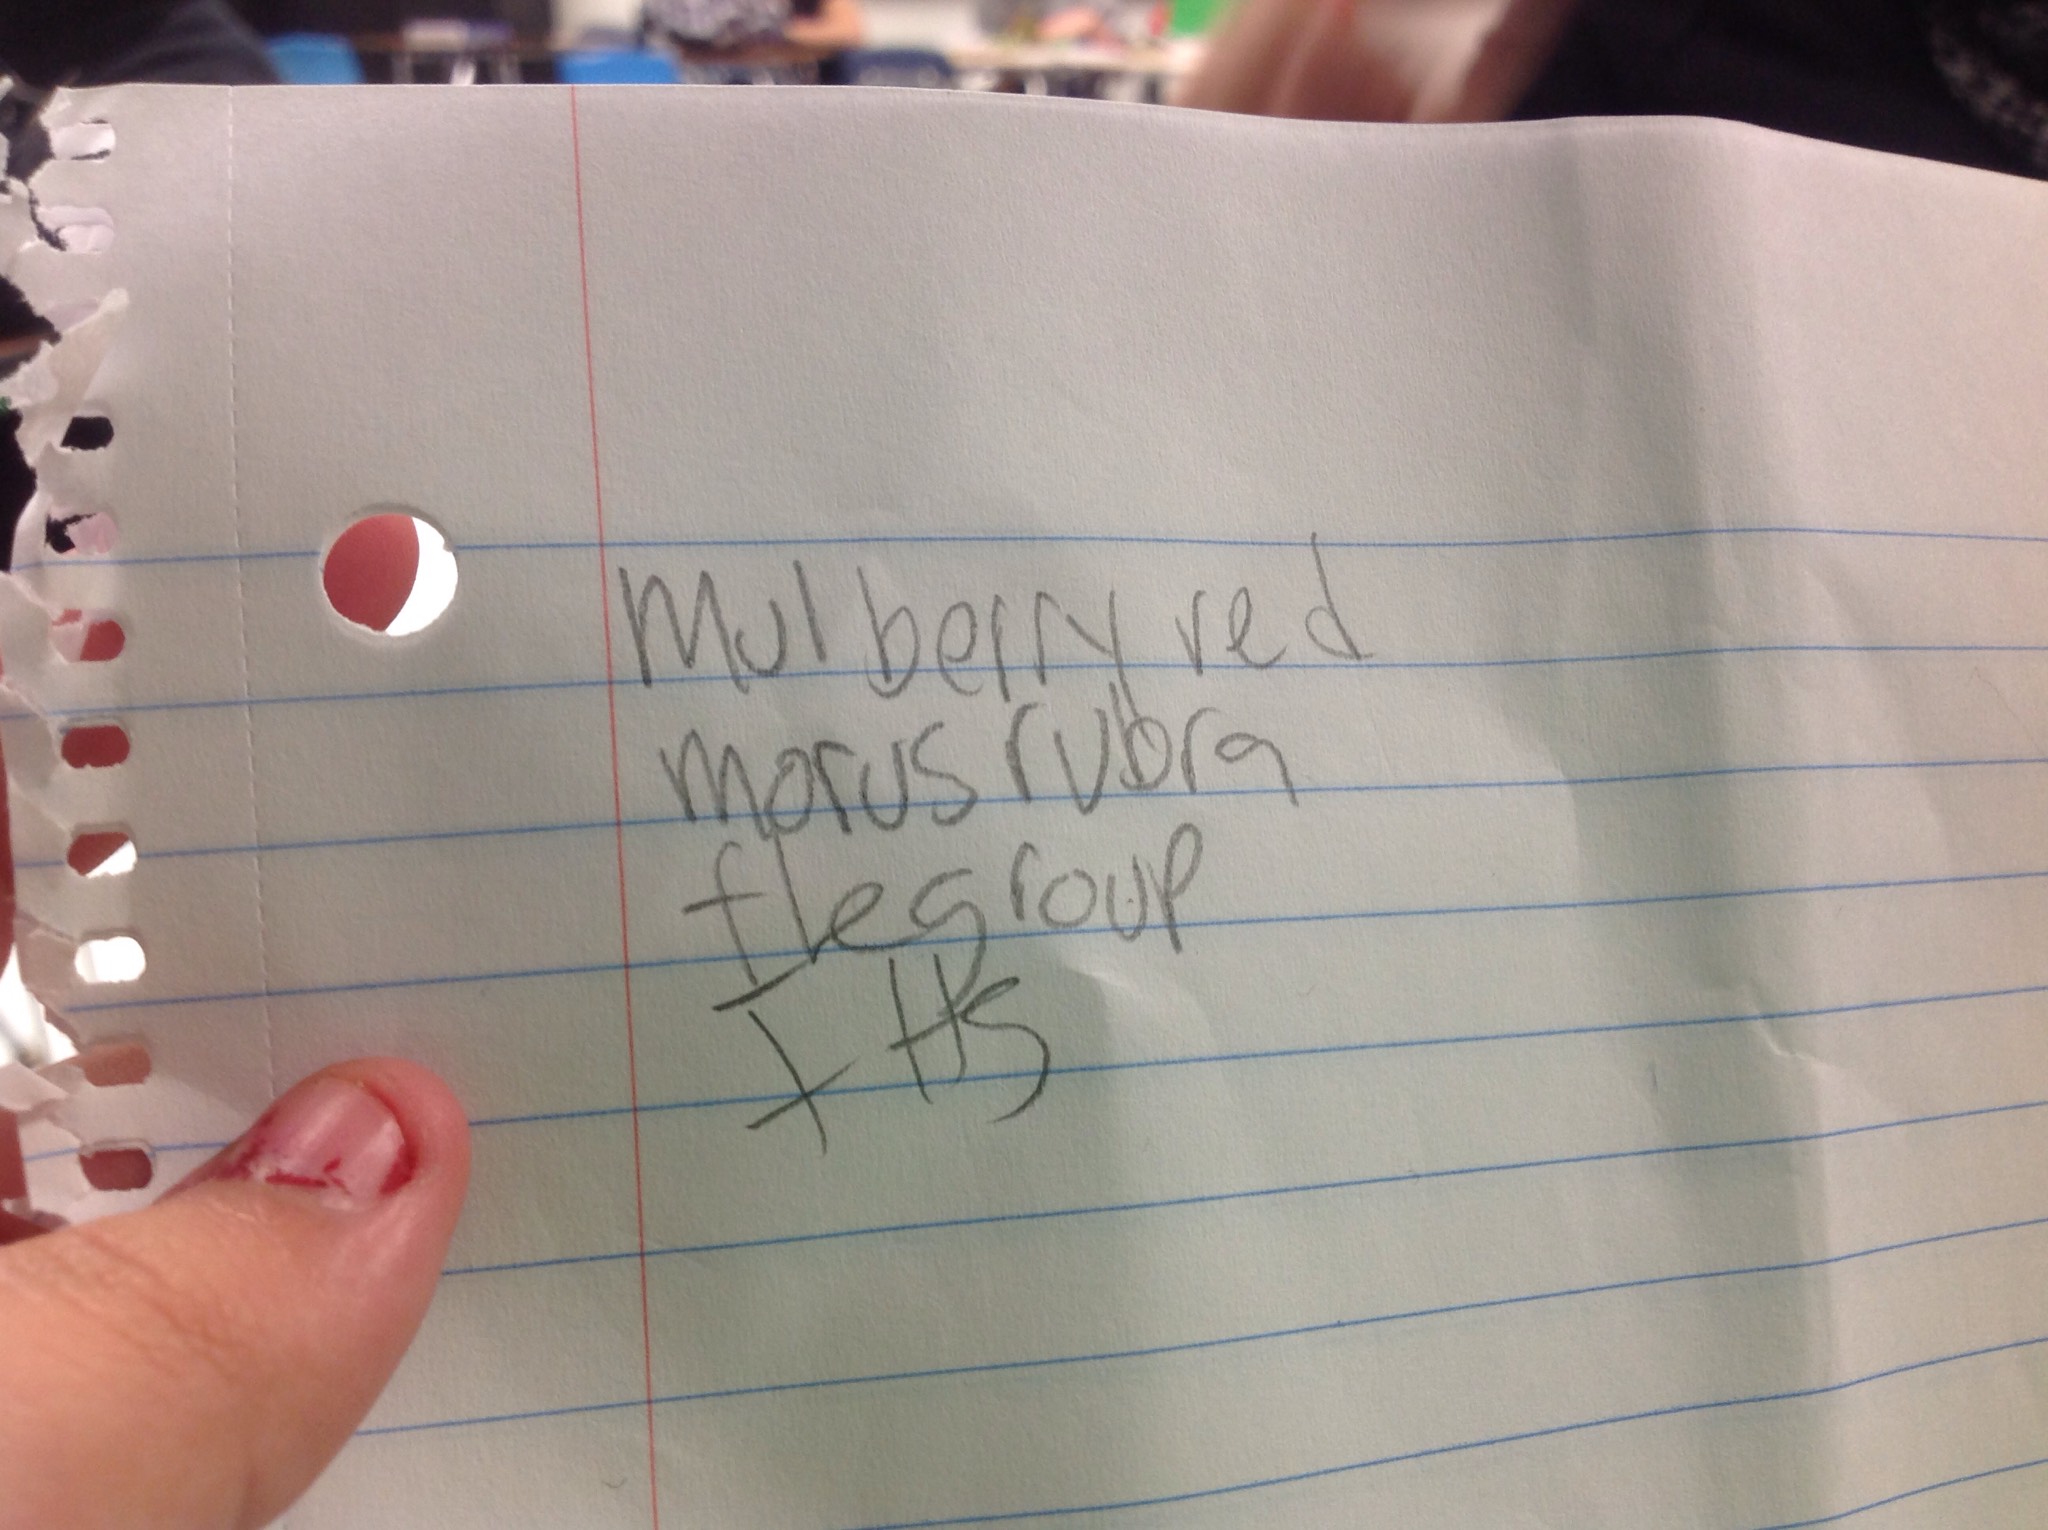 Mulberry red
morus rubra
flegroup
IHS